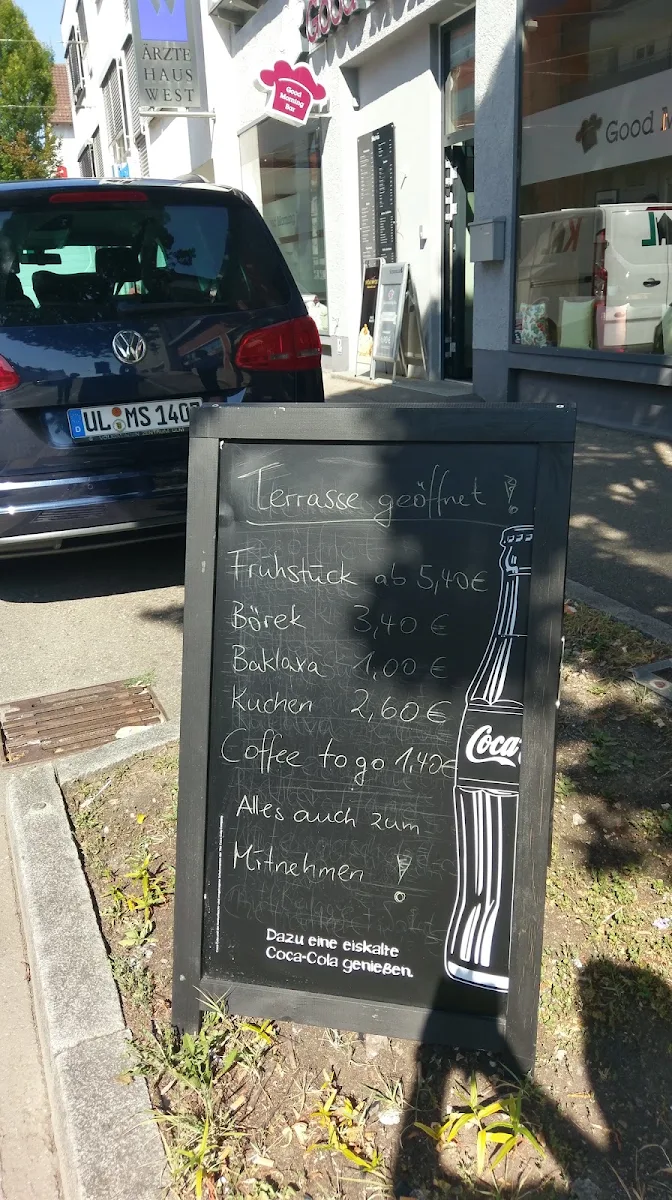 ÄRZTE
HAUS
WEST
Good
Good
Morning
Bar
Good
UL MS 140
Terrasse geöffnet !
Frühstück ab 5,40€
Börek 3,40 €
Baklava 1,00 €
Kuchen 2,60€
Coffee to go 1,40€
Alles auch zum
Mitnehmen !
Coca
Dazu eine eiskalte
Coca-Cola genießen.